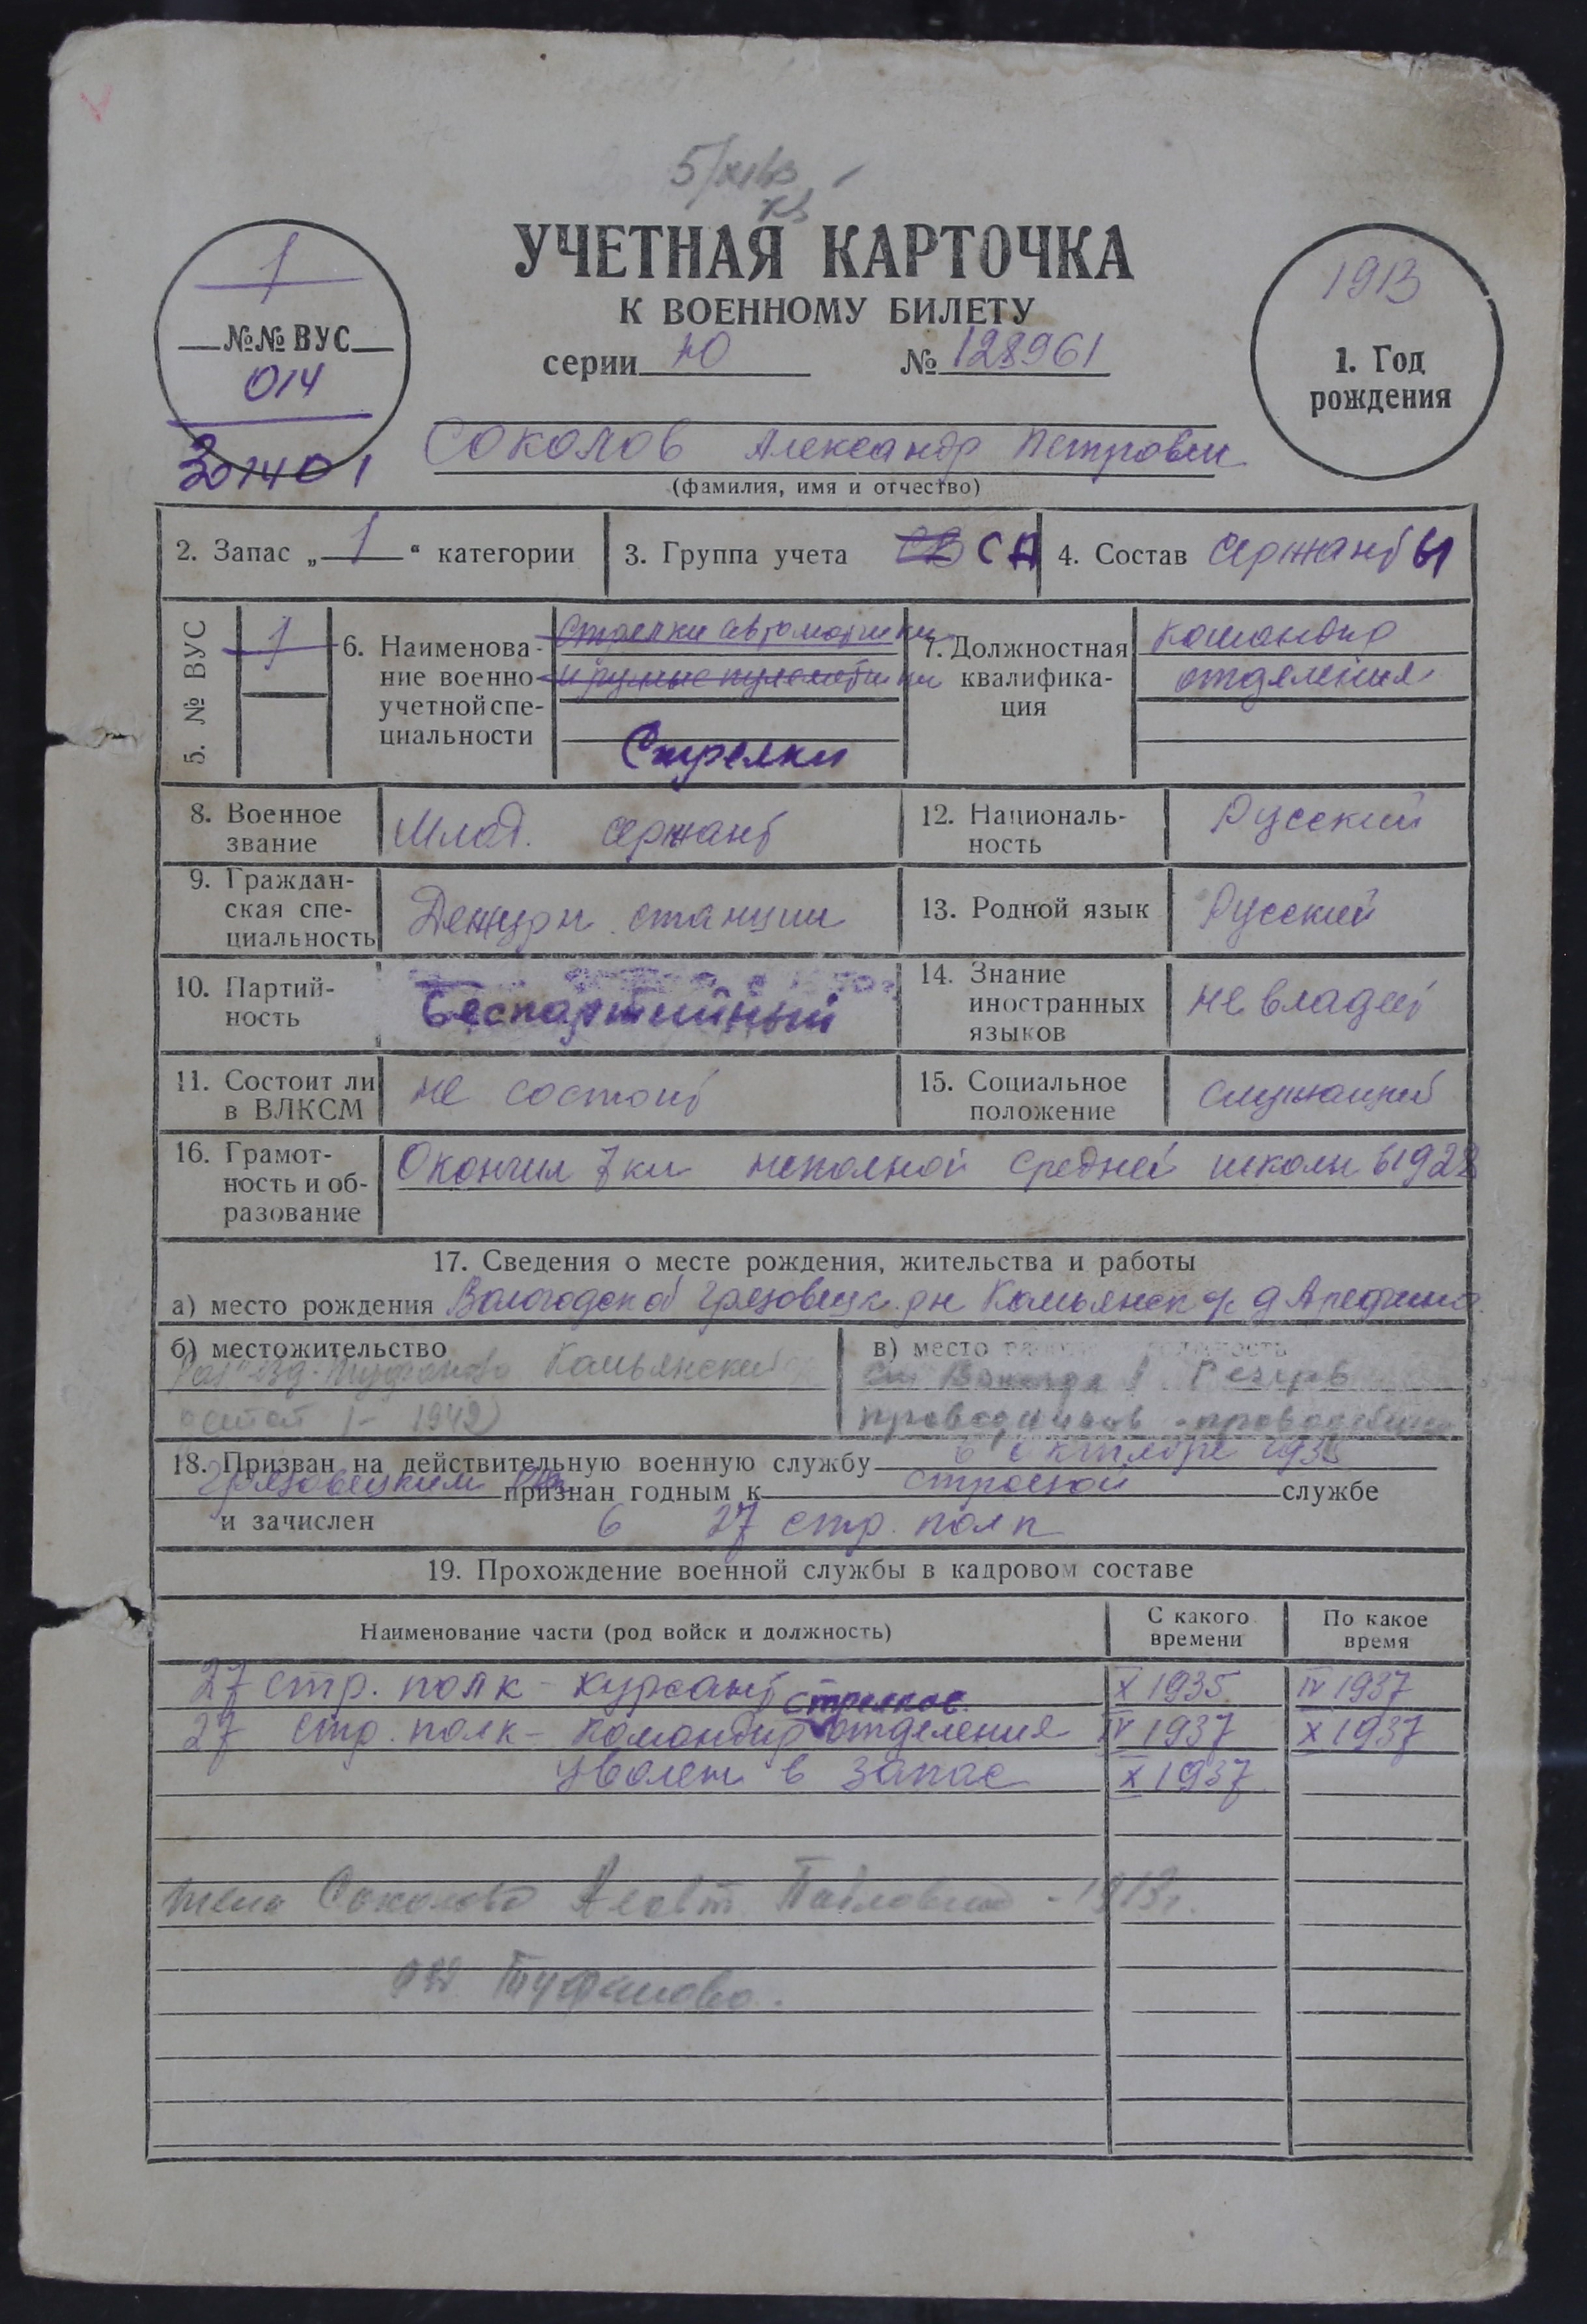 5/XI
УЧЕТНАЯ КАРТОЧКА
К ВОЕННОМУ БИЛЕТУ
серии Ю № 128961
1
№№ ВУС
014
301401
1913
1. Год
рождения
Соколов Александр Петрович
(фамилия, имя и отчество)
2. Запас „ 1 “ категории
3. Группа учета СА
4. Состав Сержанты
5. № ВУС
1
6. Наименова-
ние военно-
учетной спе-
циальности
Стрелки автоматчики
и ручные пулеметчики
Стрелки
7. Должностная
квалифика-
ция
командир
отделения
8. Военное
звание
Млад. сержант
12. Националь-
ность
Русский
9. Граждан-
ская спе-
циальность
Дежурн. станции
13. Родной язык
Русский
10. Партий-
ность
Беспартийный
14. Знание
иностранных
языков
не владеет
11. Состоит ли
в ВЛКСМ
не состоит
15. Социальное
положение
служащий
16. Грамот-
ность и об-
разование
Окончил 7 кл неполной средней школы в 1928
17. Сведения о месте рождения, жительства и работы
а) место рождения Вологодск об Грязовецк. рн Камьянск д Арефино
б) местожительство
Туфаново Камьянский
1942
в) место работы
Вологда 1 Резерв
проводников - проводник
18. Призван на действительную военную службу 6 октября 1935
Грязовецким РВК признан годным к строевой службе
и зачислен в 27 стр. полк
19. Прохождение военной службы в кадровом составе
Наименование части (род войск и должность)
С какого
времени
По какое
время
27 стр. полк - курсант X 1935 IV 1937
стрелков.
27 стр. полк - командир отделения IV 1937 X 1937
уволен в запас X 1937
жена Соколова Павловна - 1913г.
Туфаново.